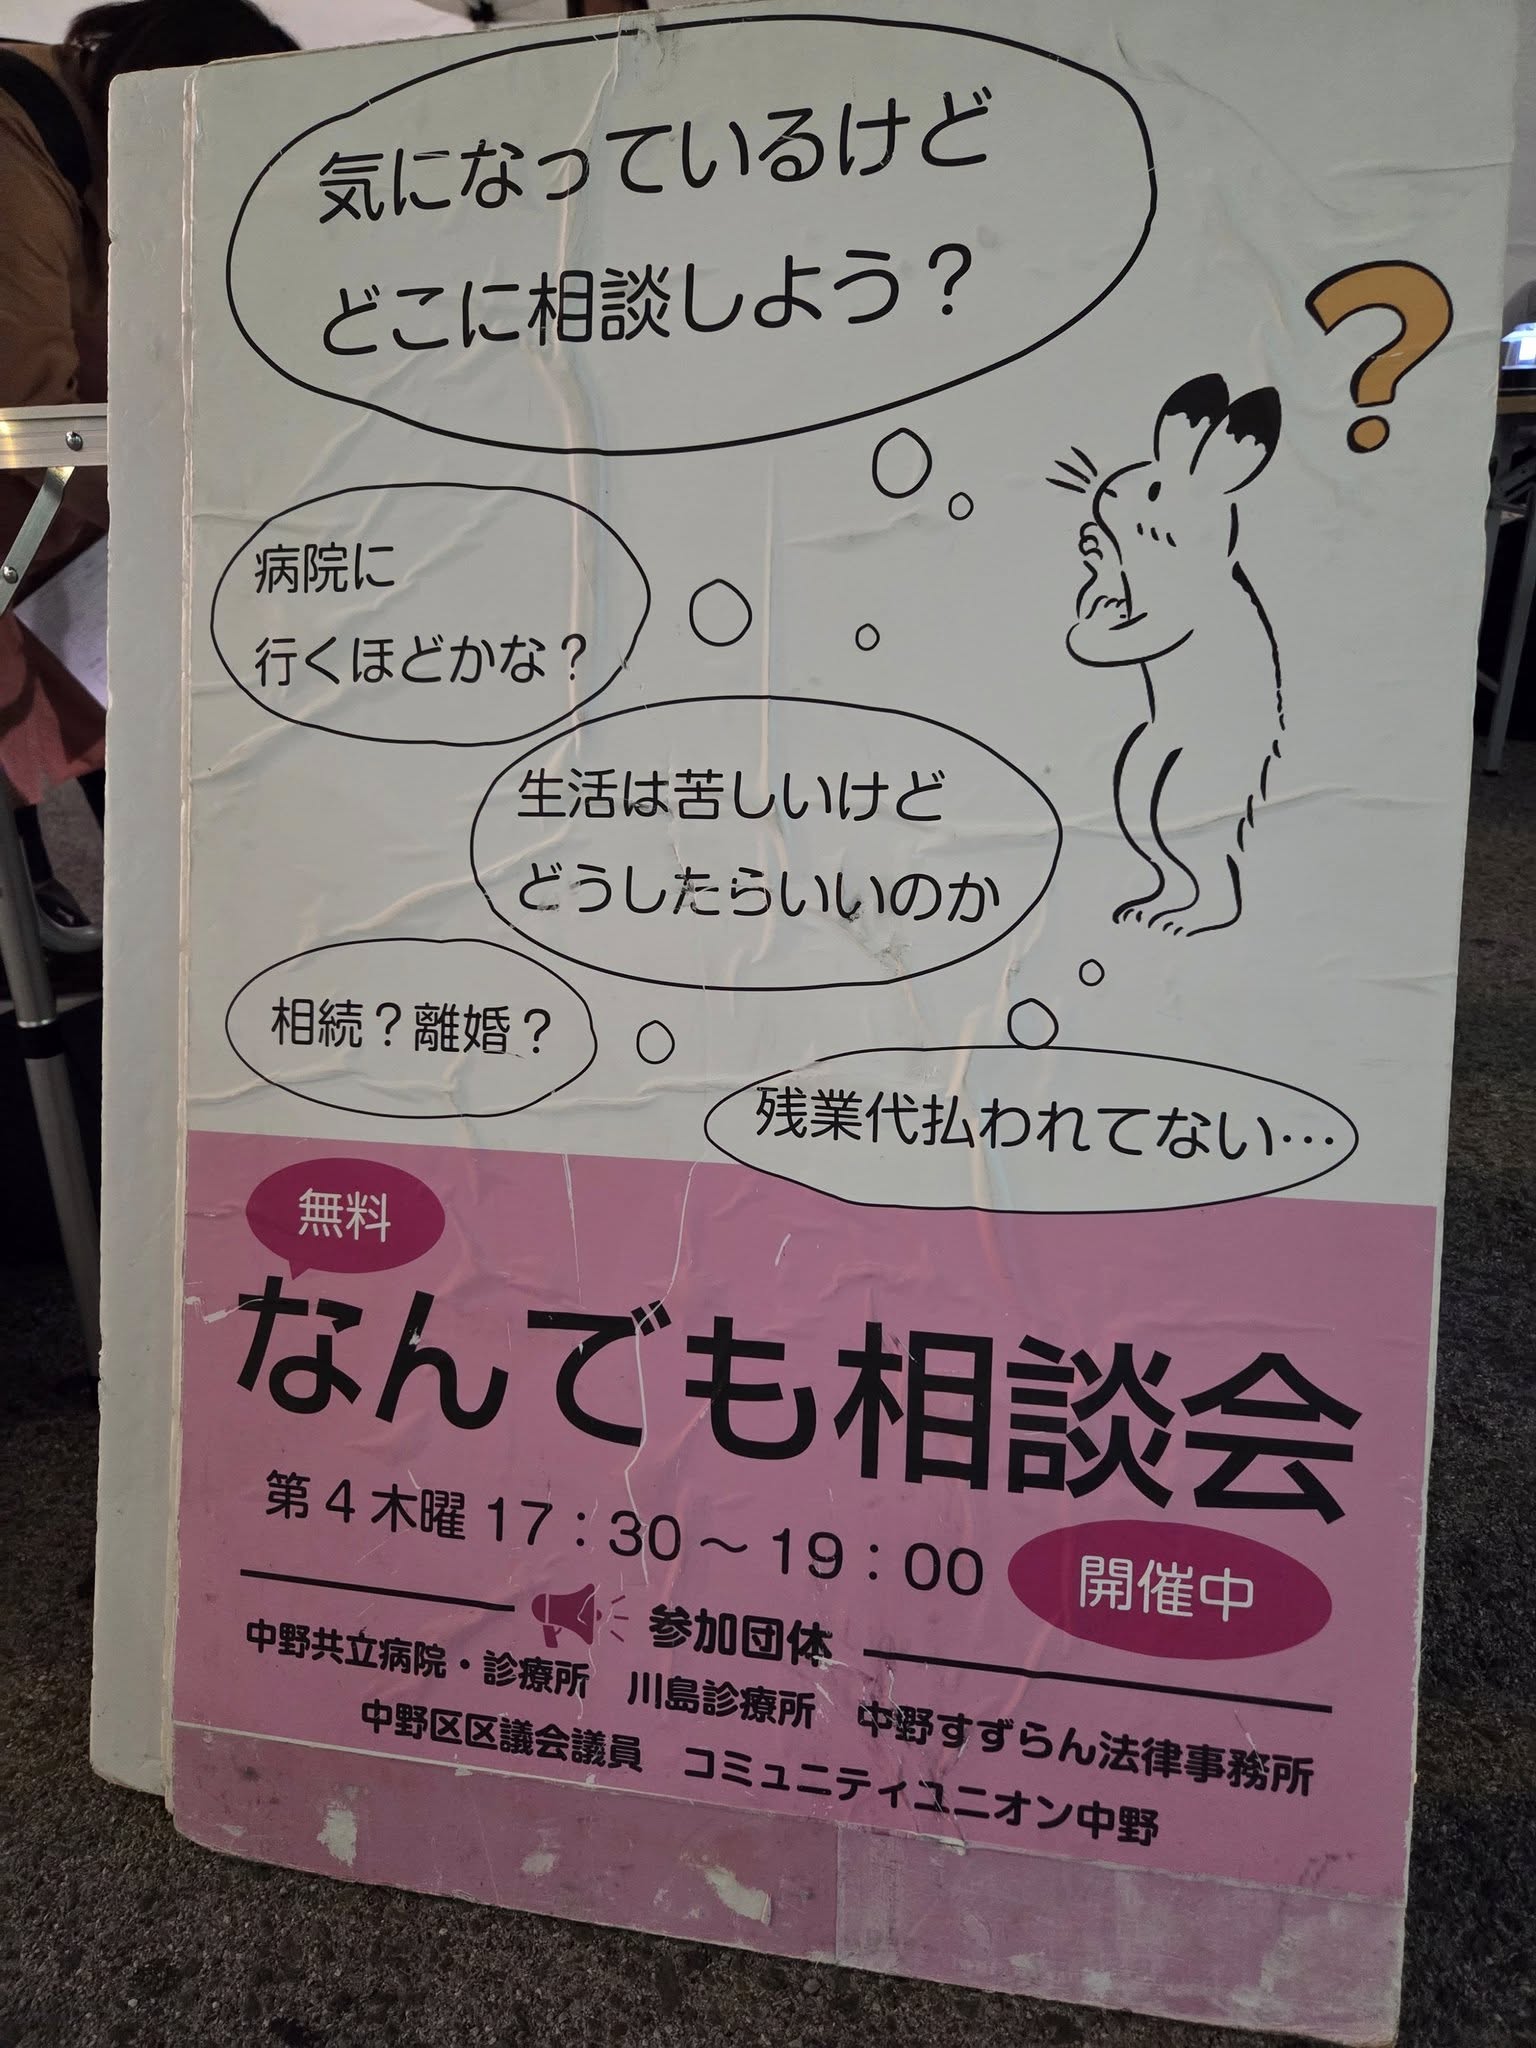 気になっているけど
どこに相談しよう？
?
病院に
行くほどかな？
生活は苦しいけど
どうしたらいいのか
相続？離婚？
残業代払われてない…
無料
なんでも相談会
第4木曜 17：30～19：00
開催中
参加団体
中野共立病院・診療所　川島診療所　中野すずらん法律事務所
中野区区議会議員　コミュニティユニオン中野